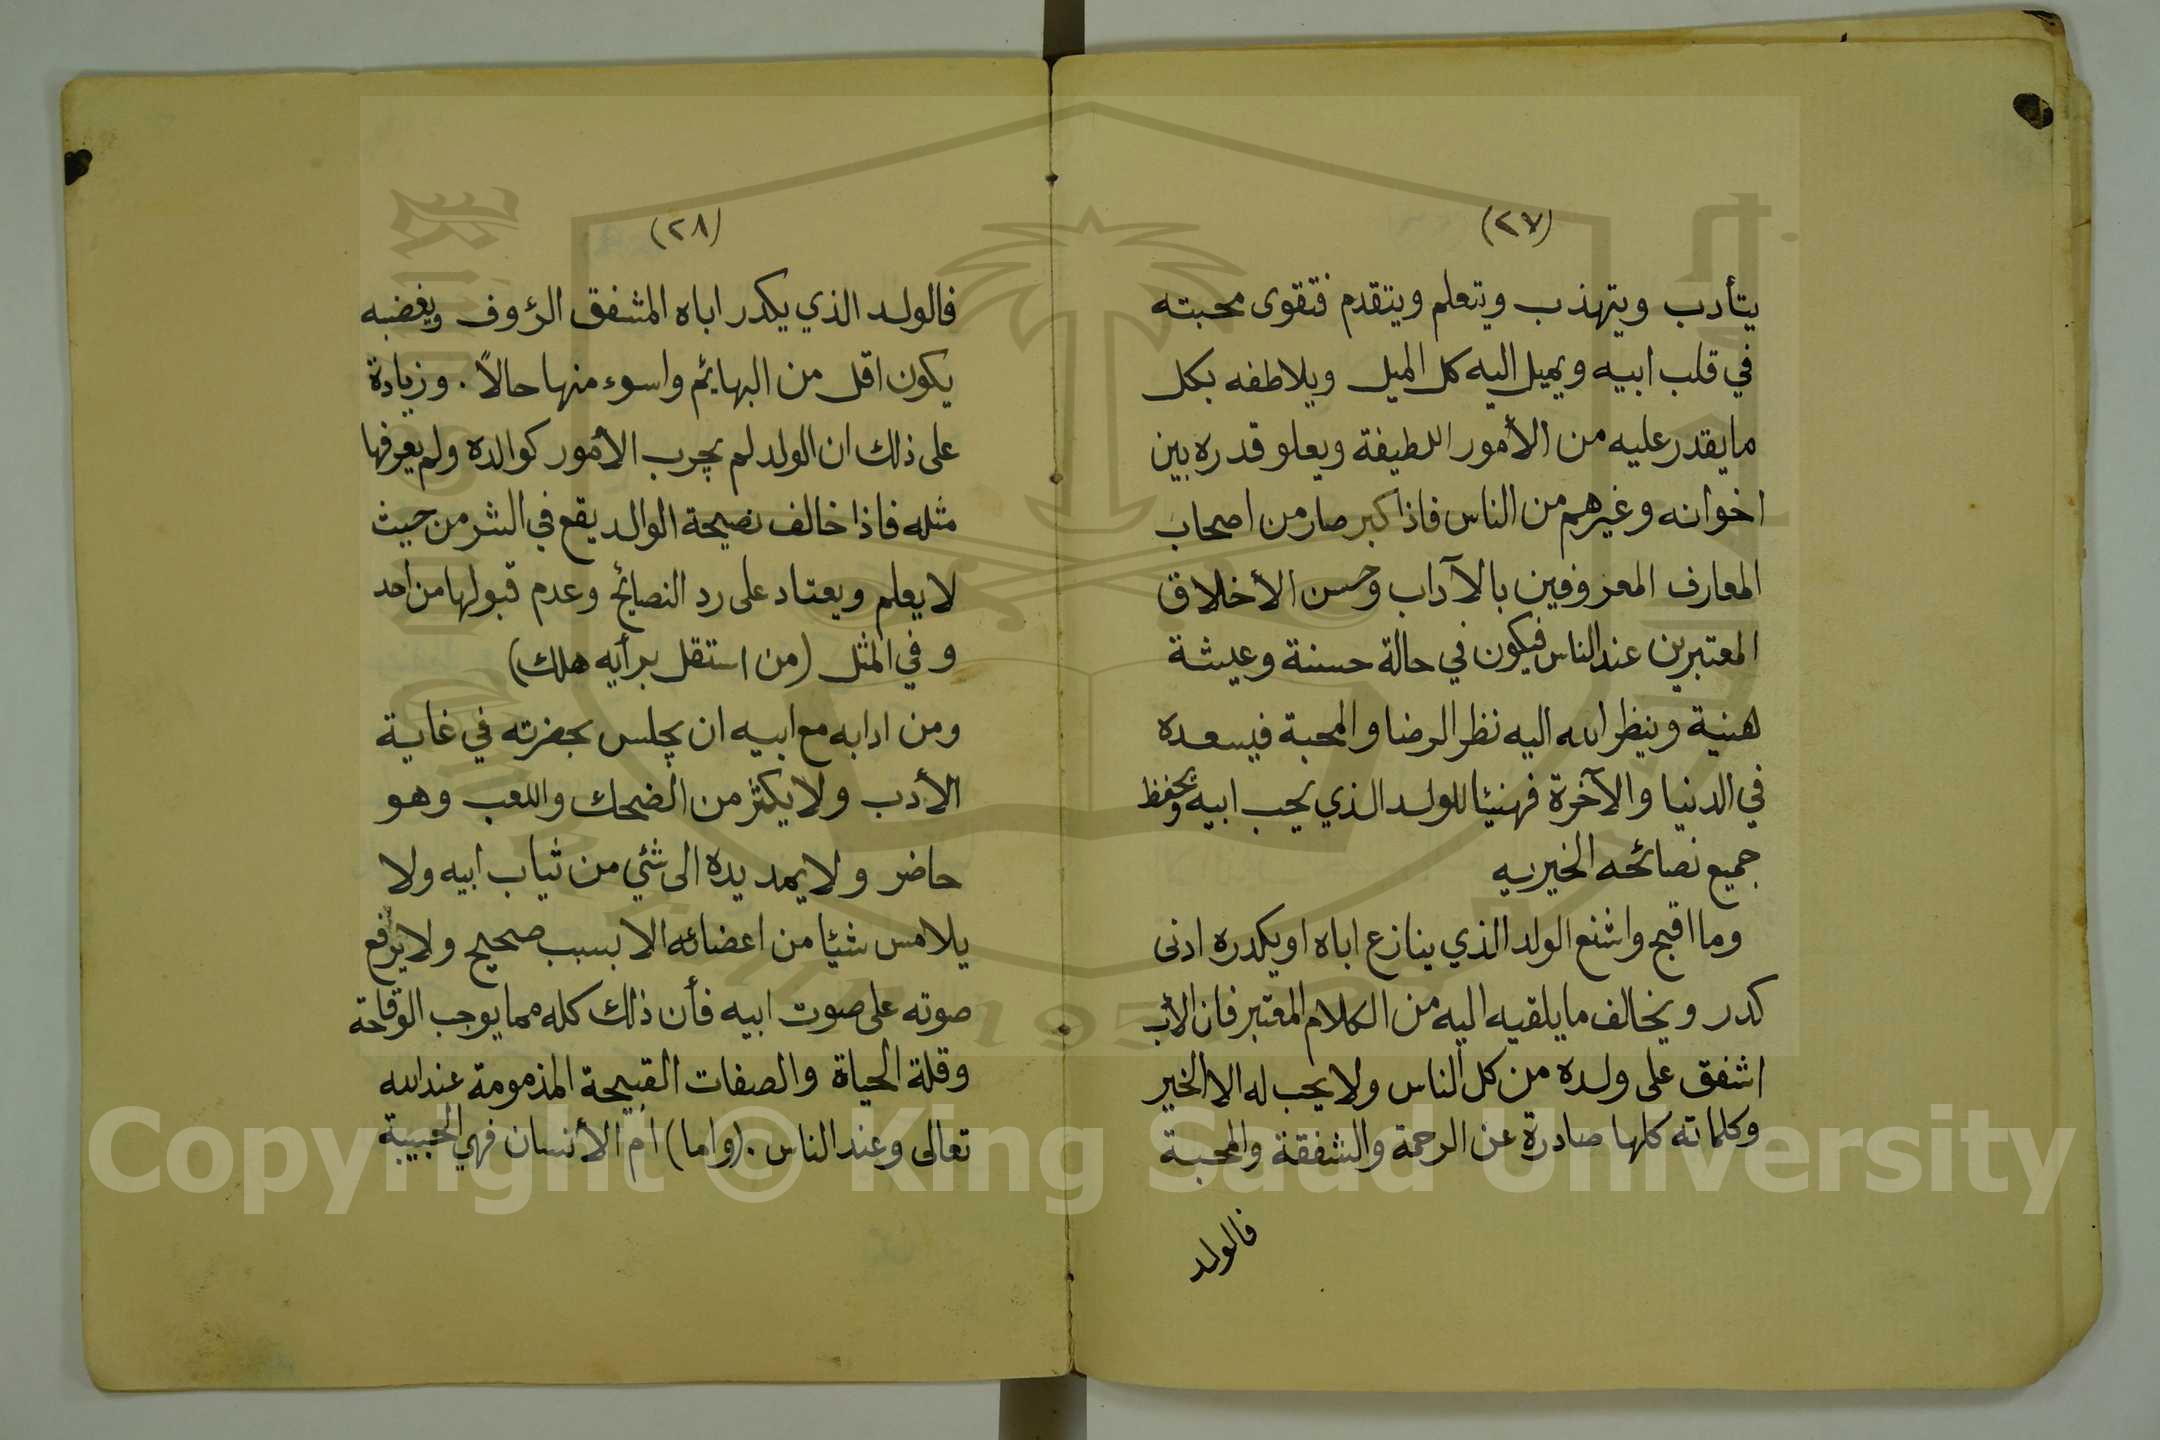 (٢٧)
يتأدب ويتهذب ويتعلم ويتقدم فتقوى محبته
في قلب ابيه ويميل اليه كل الميل ويلاطفه بكل
مايقدر عليه من الأمور اللطيفة ويعلو قدره بين
اخوانه وغيرهم من الناس فاذا كبر صار من اصحاب
المعارف المعروفين بالآداب وحسن الأخلاق
المعتبرين عند الناس فيكون في حالة حسنة وعيشة
هنية وينظر الله اليه نظر الرضا والمحبة فيسعده
في الدنيا والآخرة فهنيئا للولد الذي يحب ابيه ويحفظ
جميع نصائحه الخيريه
وما اقبح واشنع الولد الذي ينازع اباه او يكدره ادنى
كدر ويخالف مايلقيه اليه من الكلام المعتبر فان الأب
اشفق على ولده من كل الناس ولا يحب له الا الخير
وكلماته كلها صادرة عن الرحمة والشفقة والمحبة
فالولد
(٢٨)
فالولد الذي يكدر اباه المشفق الرؤوف ويغضبه
يكون اقل من البهايئم واسوء منها حالاً . وزيادة
على ذلك ان الولد لم يجرب الأمور كوالده ولم يعرفها
مثله فاذا خالف نصيحة الوالد يقع في الشر من حيث
لا يعلم ويعتاد على رد النصايح وعدم قبولها من احد
وفي المثل (من استقل برأيه هلك)
ومن ادابه مع ابيه ان يجلس بحضرته في غاية
الأدب ولا يكثر من الضحك واللعب وهو
حاضر ولا يمد يده الى شئي من ثياب ابيه ولا
يلامس شيئا من اعضائه الا بسبب صحيح ولا يرفع
صوته على صوت ابيه فأن ذلك كله مما يوجب الوقاحة
وقلة الحياة والصفات القبيحة المذمومة عند الله
تعالى وعند الناس . (واما) أم الأنسان فهي الحبيبة
Copyright © King Saud University